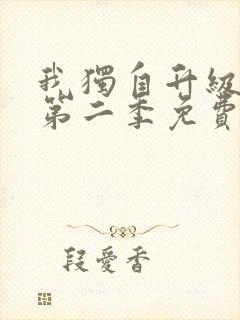 我獨自升級
第二季免費
段愛香